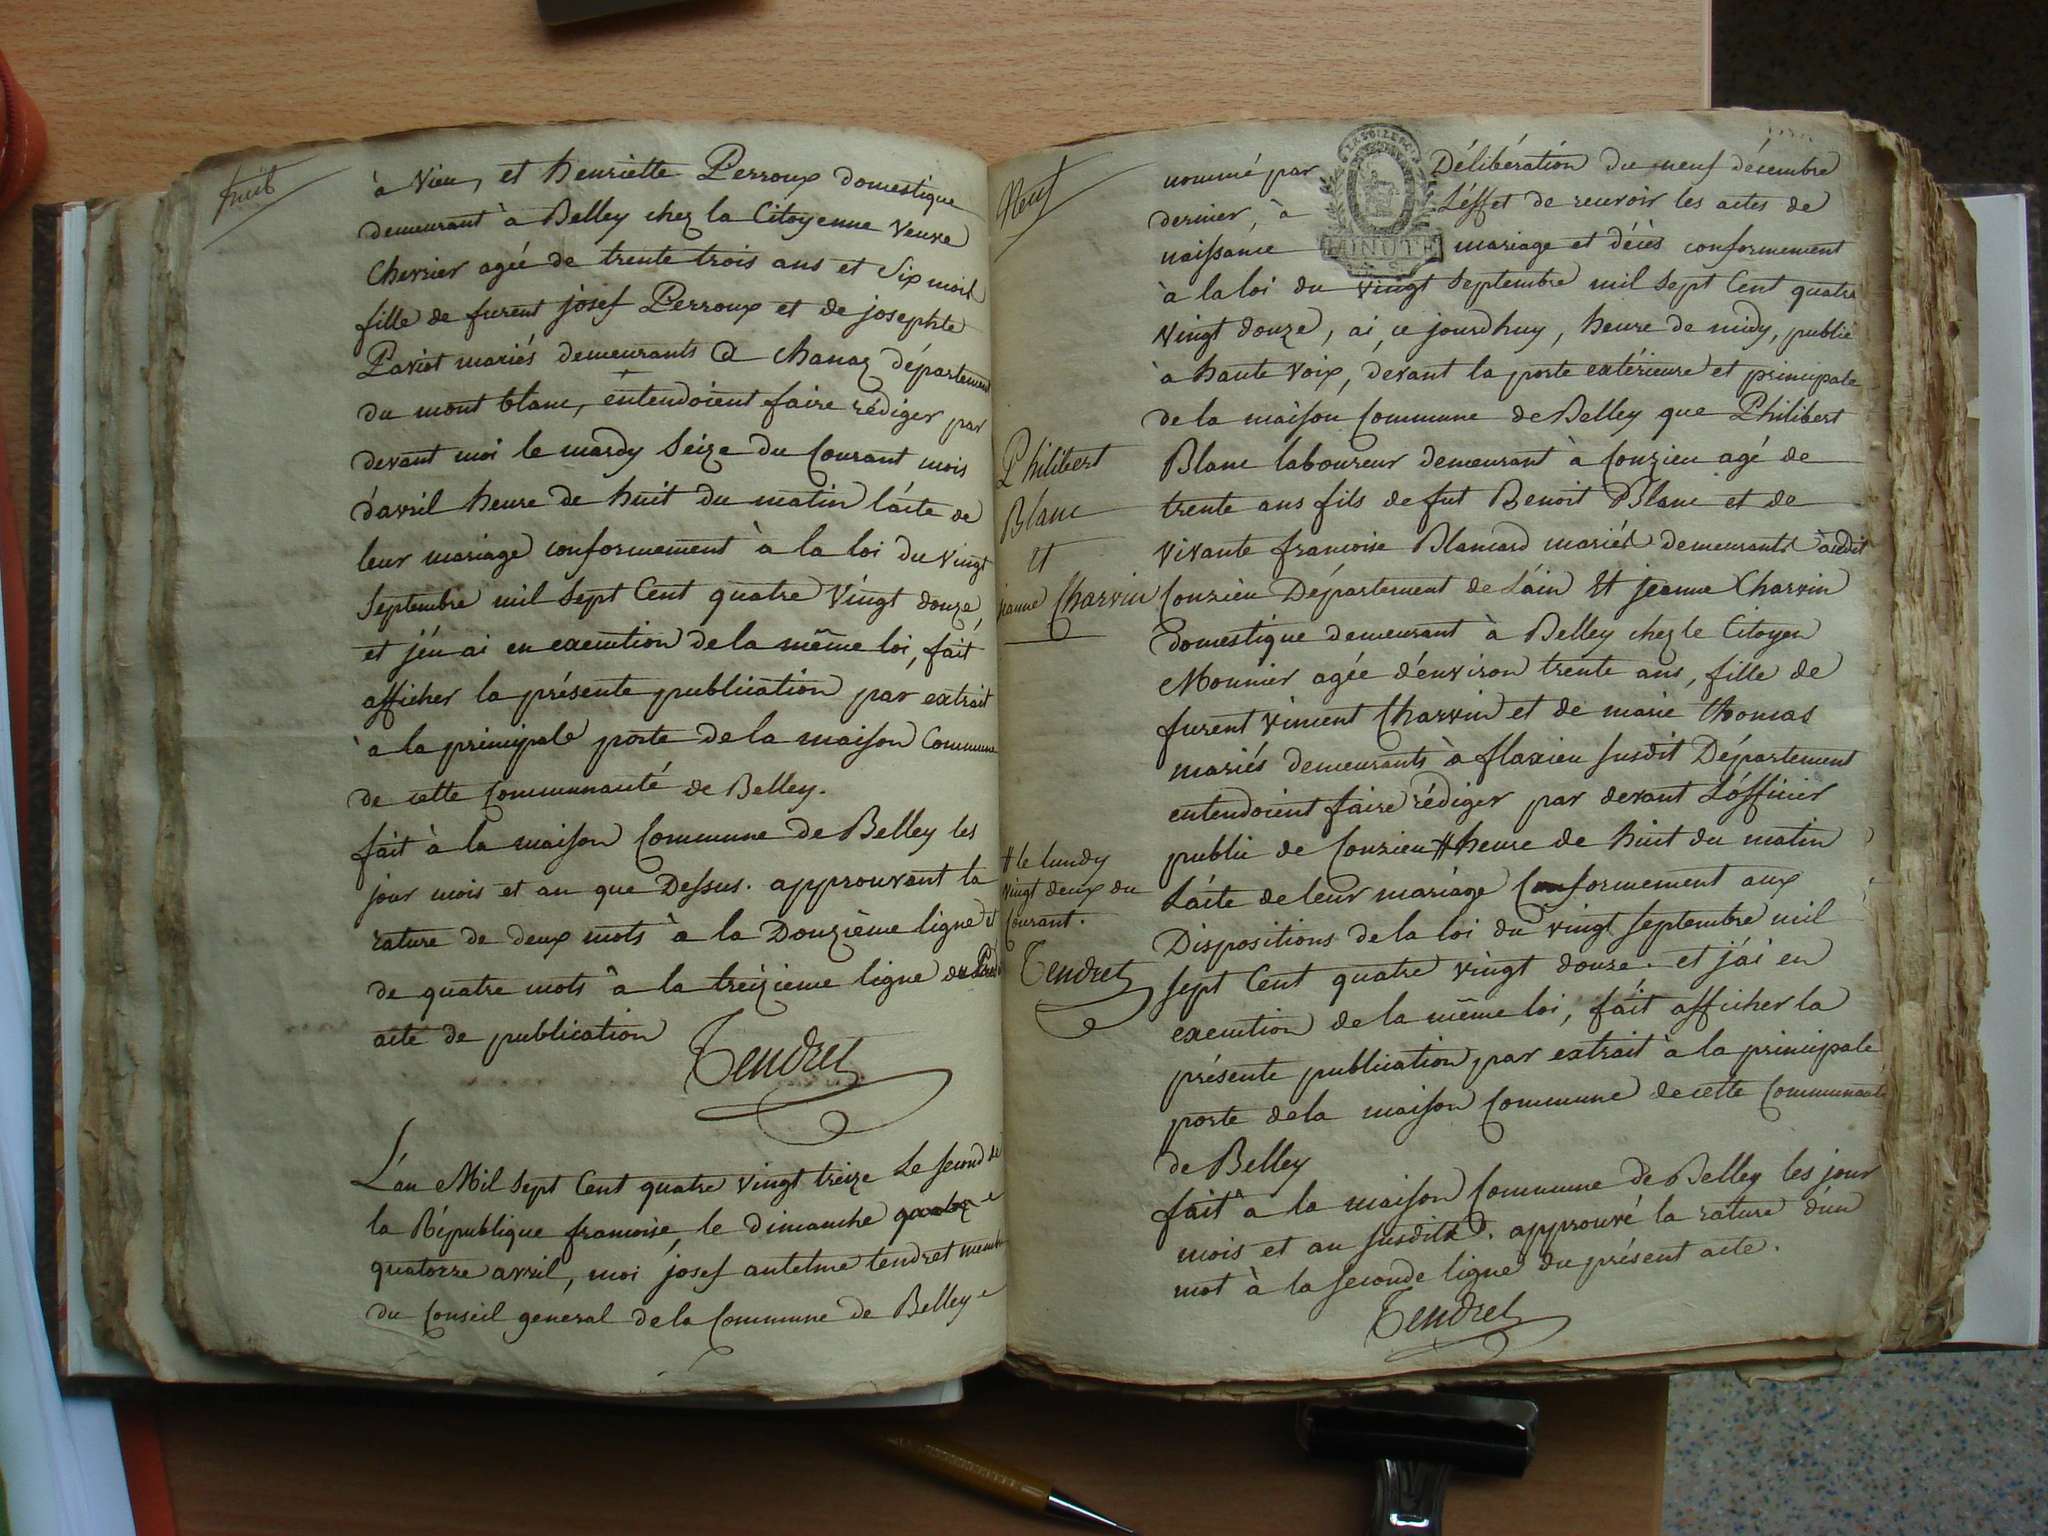 huit
à Vieu, et henriette Perroux domestique
demeurant à Belley chez la Citoyenne Veuve
Chevrier agée de trente trois ans et Six mois
fille de furent josef Perroux et de josephte
Paviot mariés demeurants a chanaz département
du mont blanc, entendoient faire rédiger par
devant moi le mardy Seize du Courant mois
d'avril heure de huit du matin l'acte de
leur mariage conformement à la loi du vingt
Septembre mil Sept Cent quatre Vingt douze,
et j'en ai en execution de la même loi, fait
afficher la présente publication par extrait
à la principale porte de la maison Commune
de cette Communauté de Belley.
fait à la maison Commune de Belley les
jour mois et an que Dessus. approuvant la
rature de deux mots à la Douzième ligne et
de quatre mots à la treizieme ligne du
acte de publication
Tendret
L'an Mil Sept Cent quatre vingt treize Le second de
la République francoise, le dimanche
quatorze avril, moi josef antelme tendret membre
du Conseil general de la Commune de Belley
Neuf
nommé par Délibération du neuf décembre
dernier, à L'effet de recevoir les actes de
naissance mariage et décès conformement
MINUTE
à la loi du vingt Septembre mil Sept Cent quatre
vingt douze, ai, ce jourdhuy, heure de midy, publié
à haute voix, devant la porte extérieure et principale
de la maison Commune de Belley que Philibert
Blanc laboureur demeurant à Conzieu agé de
trente ans fils de fut Benoit Blanc et de
vivante francoise Blancard mariés demeurants audit
Conzieu Département de L'ain Et jeanne Charvin
domestique demeurant à Belley chez le Citoyen
Monnier agée d'environ trente ans, fille de
furent vincent Charvin et de marie thomas
mariés demeurants à flaxieu susdit Département
entendoient faire rédiger par devant L'officier
public de Conzieu # heure de huit du matin
L'acte de leur mariage Conformement aux
Dispositions de la loi du vingt septembre mil
sept Cent quatre vingt douze. et j'ai en
execution de la même loi, fait afficher la
présente publication par extrait à la principale
porte de la maison Commune de cette Communauté
de Belley
fait à la maison Commune de Belley les jour
mois et an susdits. approuvé la rature d'un
mot à la seconde ligne du présent acte.
Tendret
Philibert
Blanc
et
jeanne Charvin
# le lundy
vingt deux du
Courant.
Tendret